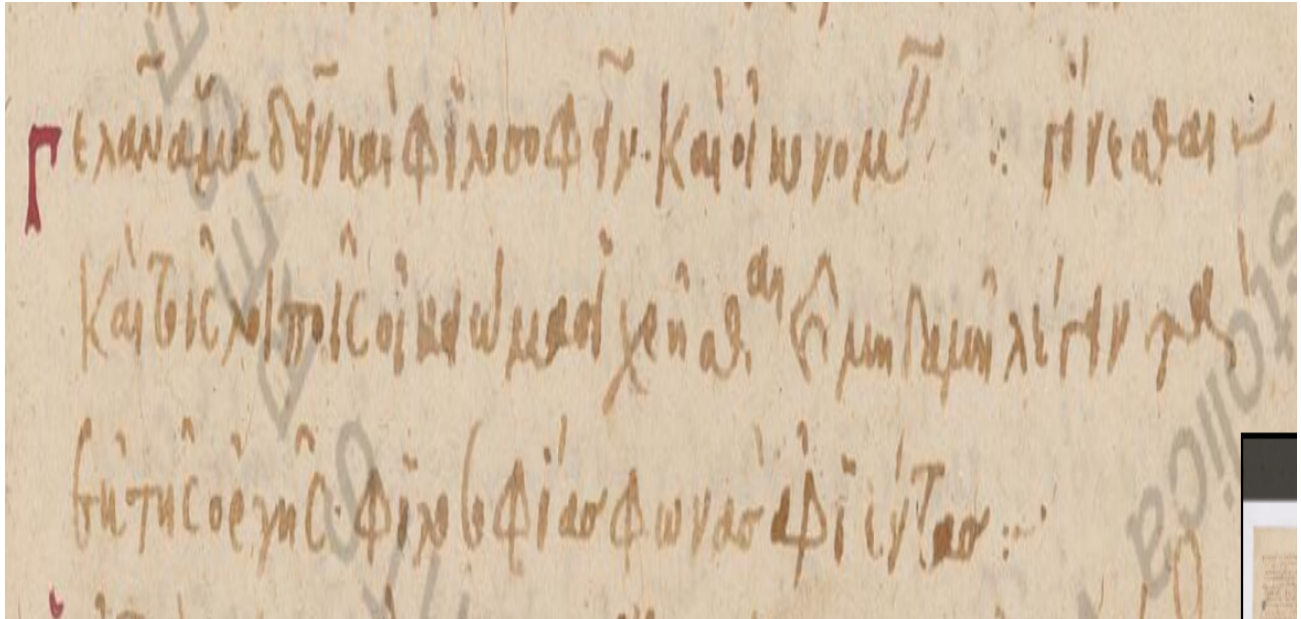 Γελᾶν ἅμα δεῖν καὶ φιλοσοφεῖν. καὶ οἰκονομεῖν :
καὶ τοῖς λοιποῖς οἰκειώμασι χρῆσθαι καὶ μηδαμῆ λήγειν
ἐκ τῆς ὀργῆς φιλοσοφίας φωνὰς ἀφιέντας :